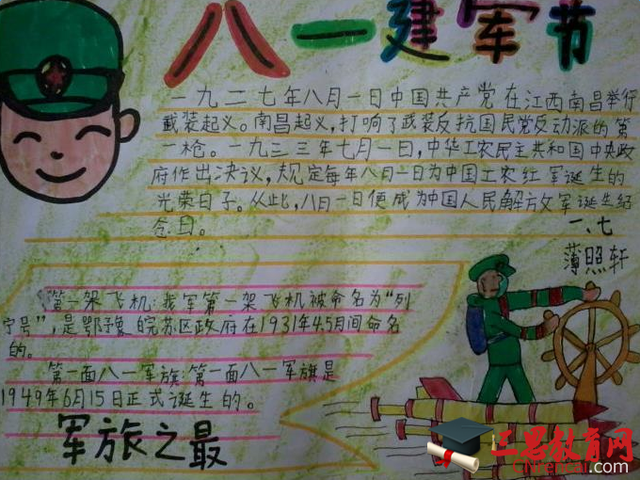 八一建军节
一九二七年八月一日中国共产党在江西南昌举行
武装起义。南昌起义，打响了武装反抗国民党反动派的第
一枪。一九三三年七月一日，中华工农民主共和国中央政
府作出决议，规定每年八月一日为中国工农红军诞生的
光荣日子。从此，八月一日便成为中国人民解放军诞生纪
念日。
一、七
薄照轩
第一架飞机：我军第一架飞机被命名为“列
宁号”，是鄂豫皖苏区政府在1931年4.5月间命名
的。
第一面八一军旗：第一面八一军旗是
1949年6月15日正式诞生的。
军旅之最
三思教育网